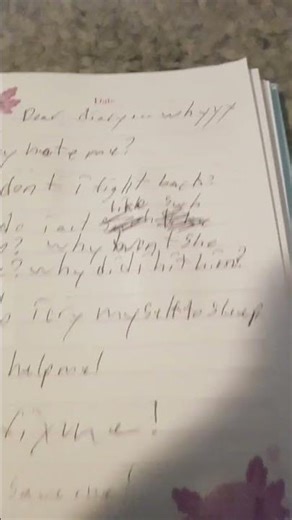 Date
Dear diary whyyyy
hate me?
don't i fight back?
like such
do i act
? why won't she
? why did i hit him?
i cry myself to sleep
help me!
fix me!
save me!